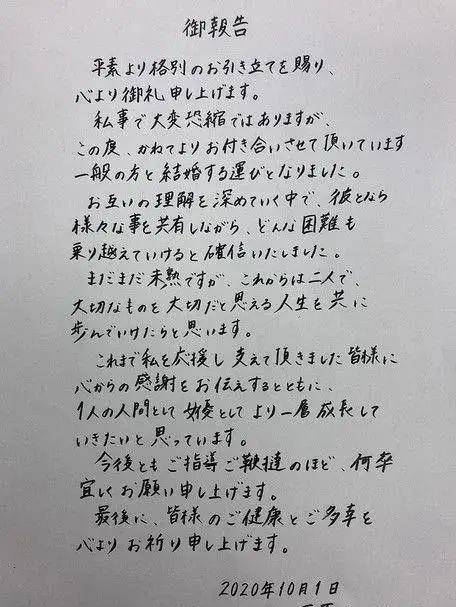 御報告
平素より格別のお引き立てを賜り、
心より御礼申し上げます。
私事で大変恐縮ではありますが、
この度、かねてよりお付き合いさせて頂いています
一般の方と結婚する運びとなりました。
お互いの理解を深めていく中で、彼となら
様々な事を共有しながら、どんな困難も
乗り越えていけると確信いたしました。
まだまだ未熟ですが、これからは二人で、
大切なものを大切だと思える人生を共に
歩んでいけたらと思います。
これまで私を応援し支えて頂きました皆様に
心からの感謝をお伝えするとともに、
1人の人間として女優としてより一層成長して
いきたいと思っています。
今後ともご指導ご鞭撻のほど、何卒
宜しくお願い申し上げます。
最後に、皆様のご健康とご多幸を
心よりお祈り申し上げます。
2020年10月1日